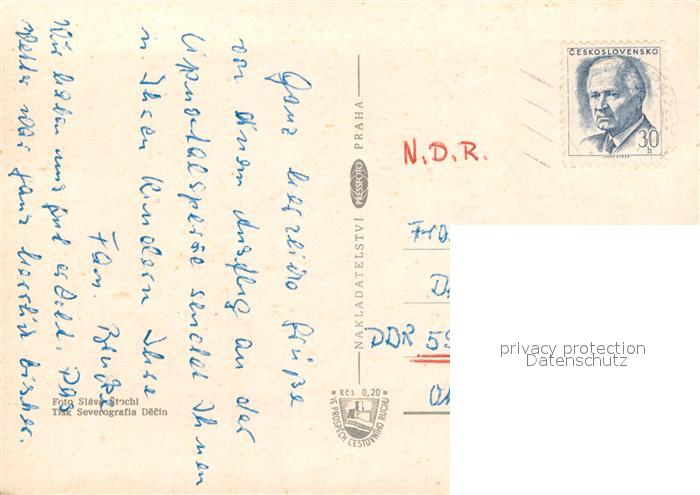 Ganz herzliche Grüße
von einem Ausflug an der
Lipnotalsperre sendet Ihnen
u. Ihren Kindern Ihre
Fam.
Wir haben uns gut erholt. Das
Wetter war ganz herrlich bisher.
Foto Sláva Štochl
Tisk Severografia Děčín
NAKLADATELSTVÍ PRESSFOTO PRAHA
Kčs 0,20
VE PROSPĚCH CESTOVNÍHO RUCHU
ČESKOSLOVENSKO
30 h
N.D.R.
DDR 59
privacy protection
Datenschutz